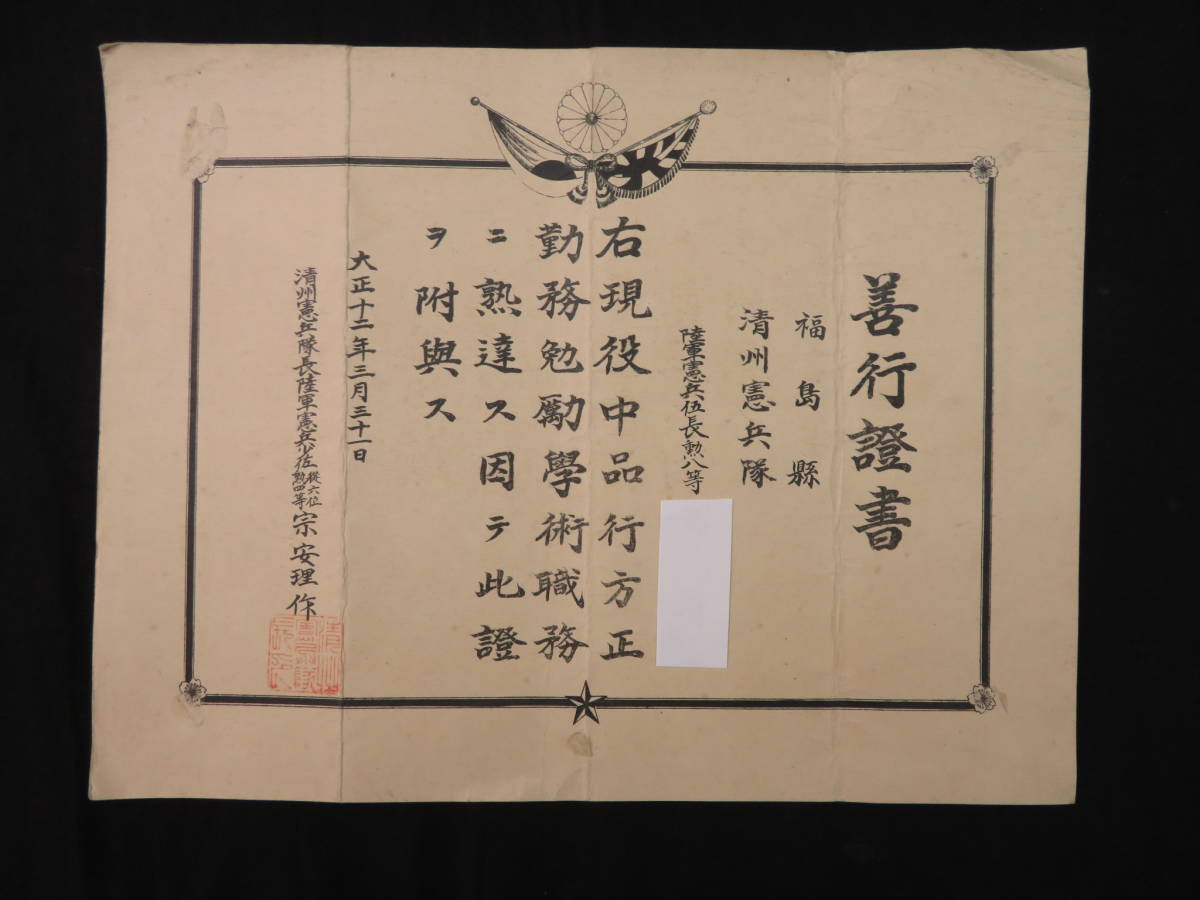 善行證書
福島縣
清州憲兵隊
陸軍憲兵伍長勲八等
右現役中品行方正
勤務勉勵學術職務
ニ熟達ス因テ此證
ヲ附與ス
大正十二年三月三十一日
清州憲兵隊長陸軍憲兵少佐從六位勲四等宗安理作